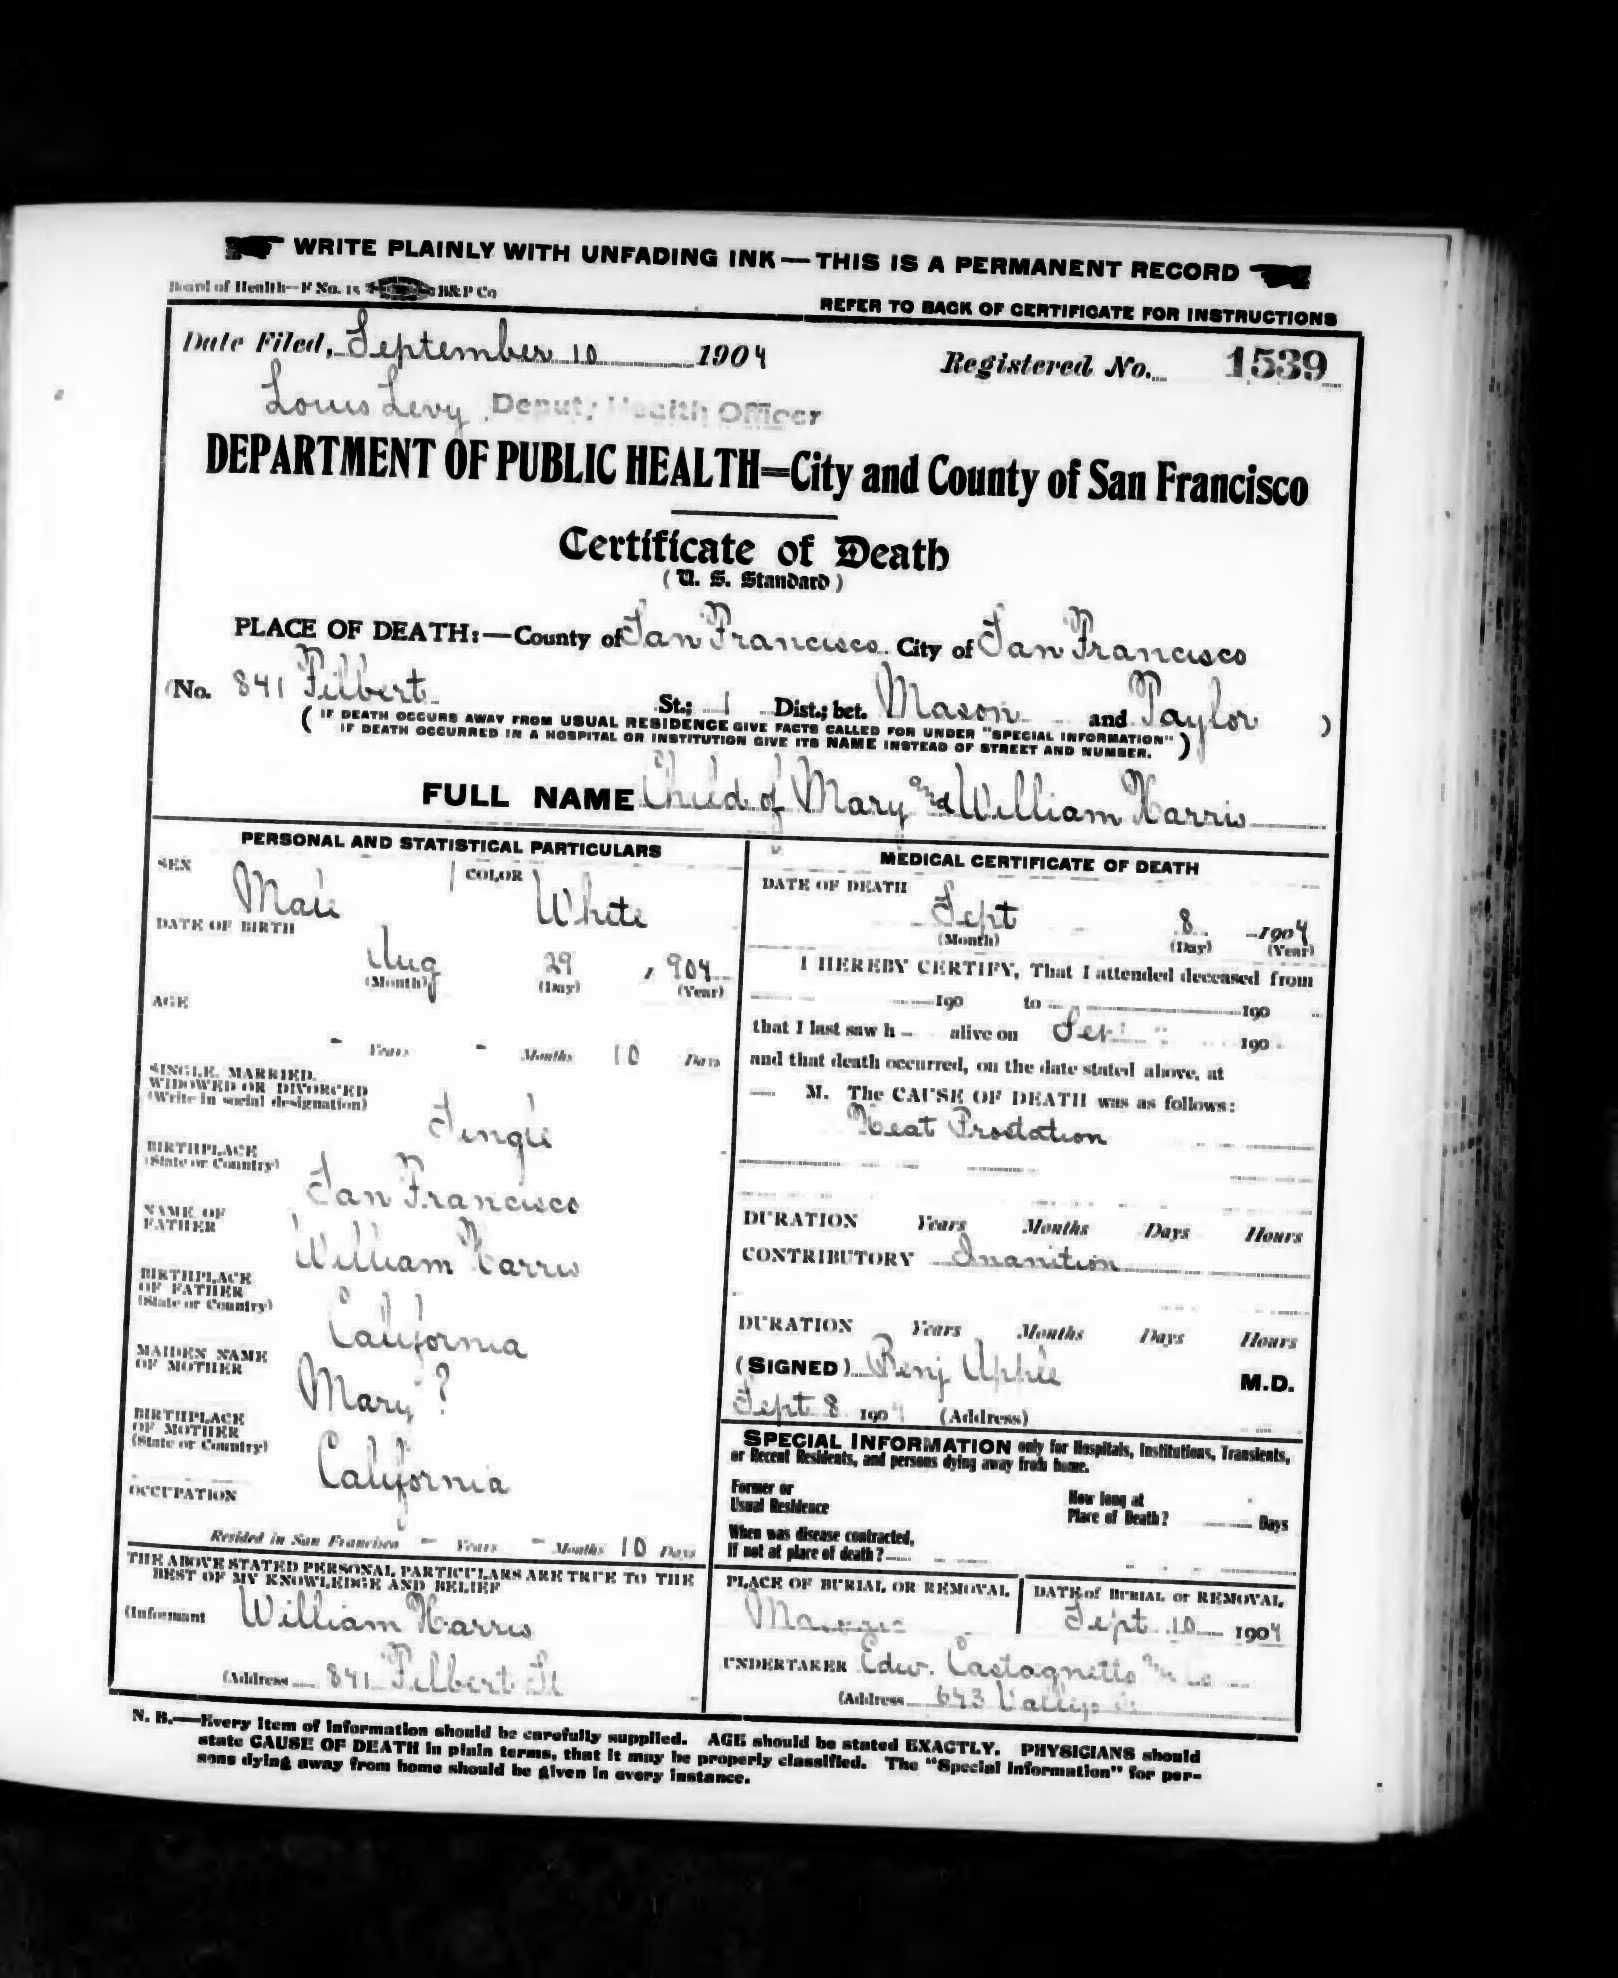 WRITE PLAINLY WITH UNFADING INK—THIS IS A PERMANENT RECORD
Board of Health—F No. 15 B&P Co
REFER TO BACK OF CERTIFICATE FOR INSTRUCTIONS
Date Filed, September 10 1904 Registered No. 1539
Louis Levy Deputy Health Officer
DEPARTMENT OF PUBLIC HEALTH=City and County of San Francisco
Certificate of Death
(U. S. Standard)
PLACE OF DEATH:—County of San Francisco City of San Francisco
(No. 841 Filbert St.; 1 Dist.; bet. Mason and Taylor )
( IF DEATH OCCURS AWAY FROM USUAL RESIDENCE GIVE FACTS CALLED FOR UNDER "SPECIAL INFORMATION"
IF DEATH OCCURRED IN A HOSPITAL OR INSTITUTION GIVE ITS NAME INSTEAD OF STREET AND NUMBER. )
FULL NAME Child of Mary and William Harris
PERSONAL AND STATISTICAL PARTICULARS
SEX Male COLOR White
DATE OF BIRTH
Aug 29 , 904
(Month) (Day) (Year)
AGE
- Years - Months 10 Days
SINGLE, MARRIED,
WIDOWED OR DIVORCED
(Write in social designation)
Single
BIRTHPLACE
(State or Country)
San Francisco
NAME OF
FATHER
William Harris
BIRTHPLACE
OF FATHER
(State or Country)
California
MAIDEN NAME
OF MOTHER
Mary ?
BIRTHPLACE
OF MOTHER
(State or Country)
California
OCCUPATION
Resided in San Francisco - Years - Months 10 Days
THE ABOVE STATED PERSONAL PARTICULARS ARE TRUE TO THE
BEST OF MY KNOWLEDGE AND BELIEF
(Informant William Harris
(Address 841 Filbert St
MEDICAL CERTIFICATE OF DEATH
DATE OF DEATH
Sept 8 1904
(Month) (Day) (Year)
I HEREBY CERTIFY, That I attended deceased from
190 to 190
that I last saw h - alive on 190
and that death occurred, on the date stated above, at
M. The CAUSE OF DEATH was as follows:
Heat Prostation
DURATION Years Months Days Hours
CONTRIBUTORY Inanition
DURATION Years Months Days Hours
(SIGNED) Benj Apple M.D.
Sept 8 1904 (Address)
SPECIAL INFORMATION only for Hospitals, Institutions, Transients,
or Recent Residents, and persons dying away from home.
Former or
Usual Residence
How long at
Place of Death? Days
When was disease contracted,
If not at place of death?
PLACE OF BURIAL OR REMOVAL
DATE of BURIAL or REMOVAL
Sept 10 1904
UNDERTAKER Edw. Castagnetto
(Address 643 Vallejo
N. B.—Every item of information should be carefully supplied. AGE should be stated EXACTLY. PHYSICIANS should
state CAUSE OF DEATH in plain terms, that it may be properly classified. The "Special Information" for per-
sons dying away from home should be given in every instance.